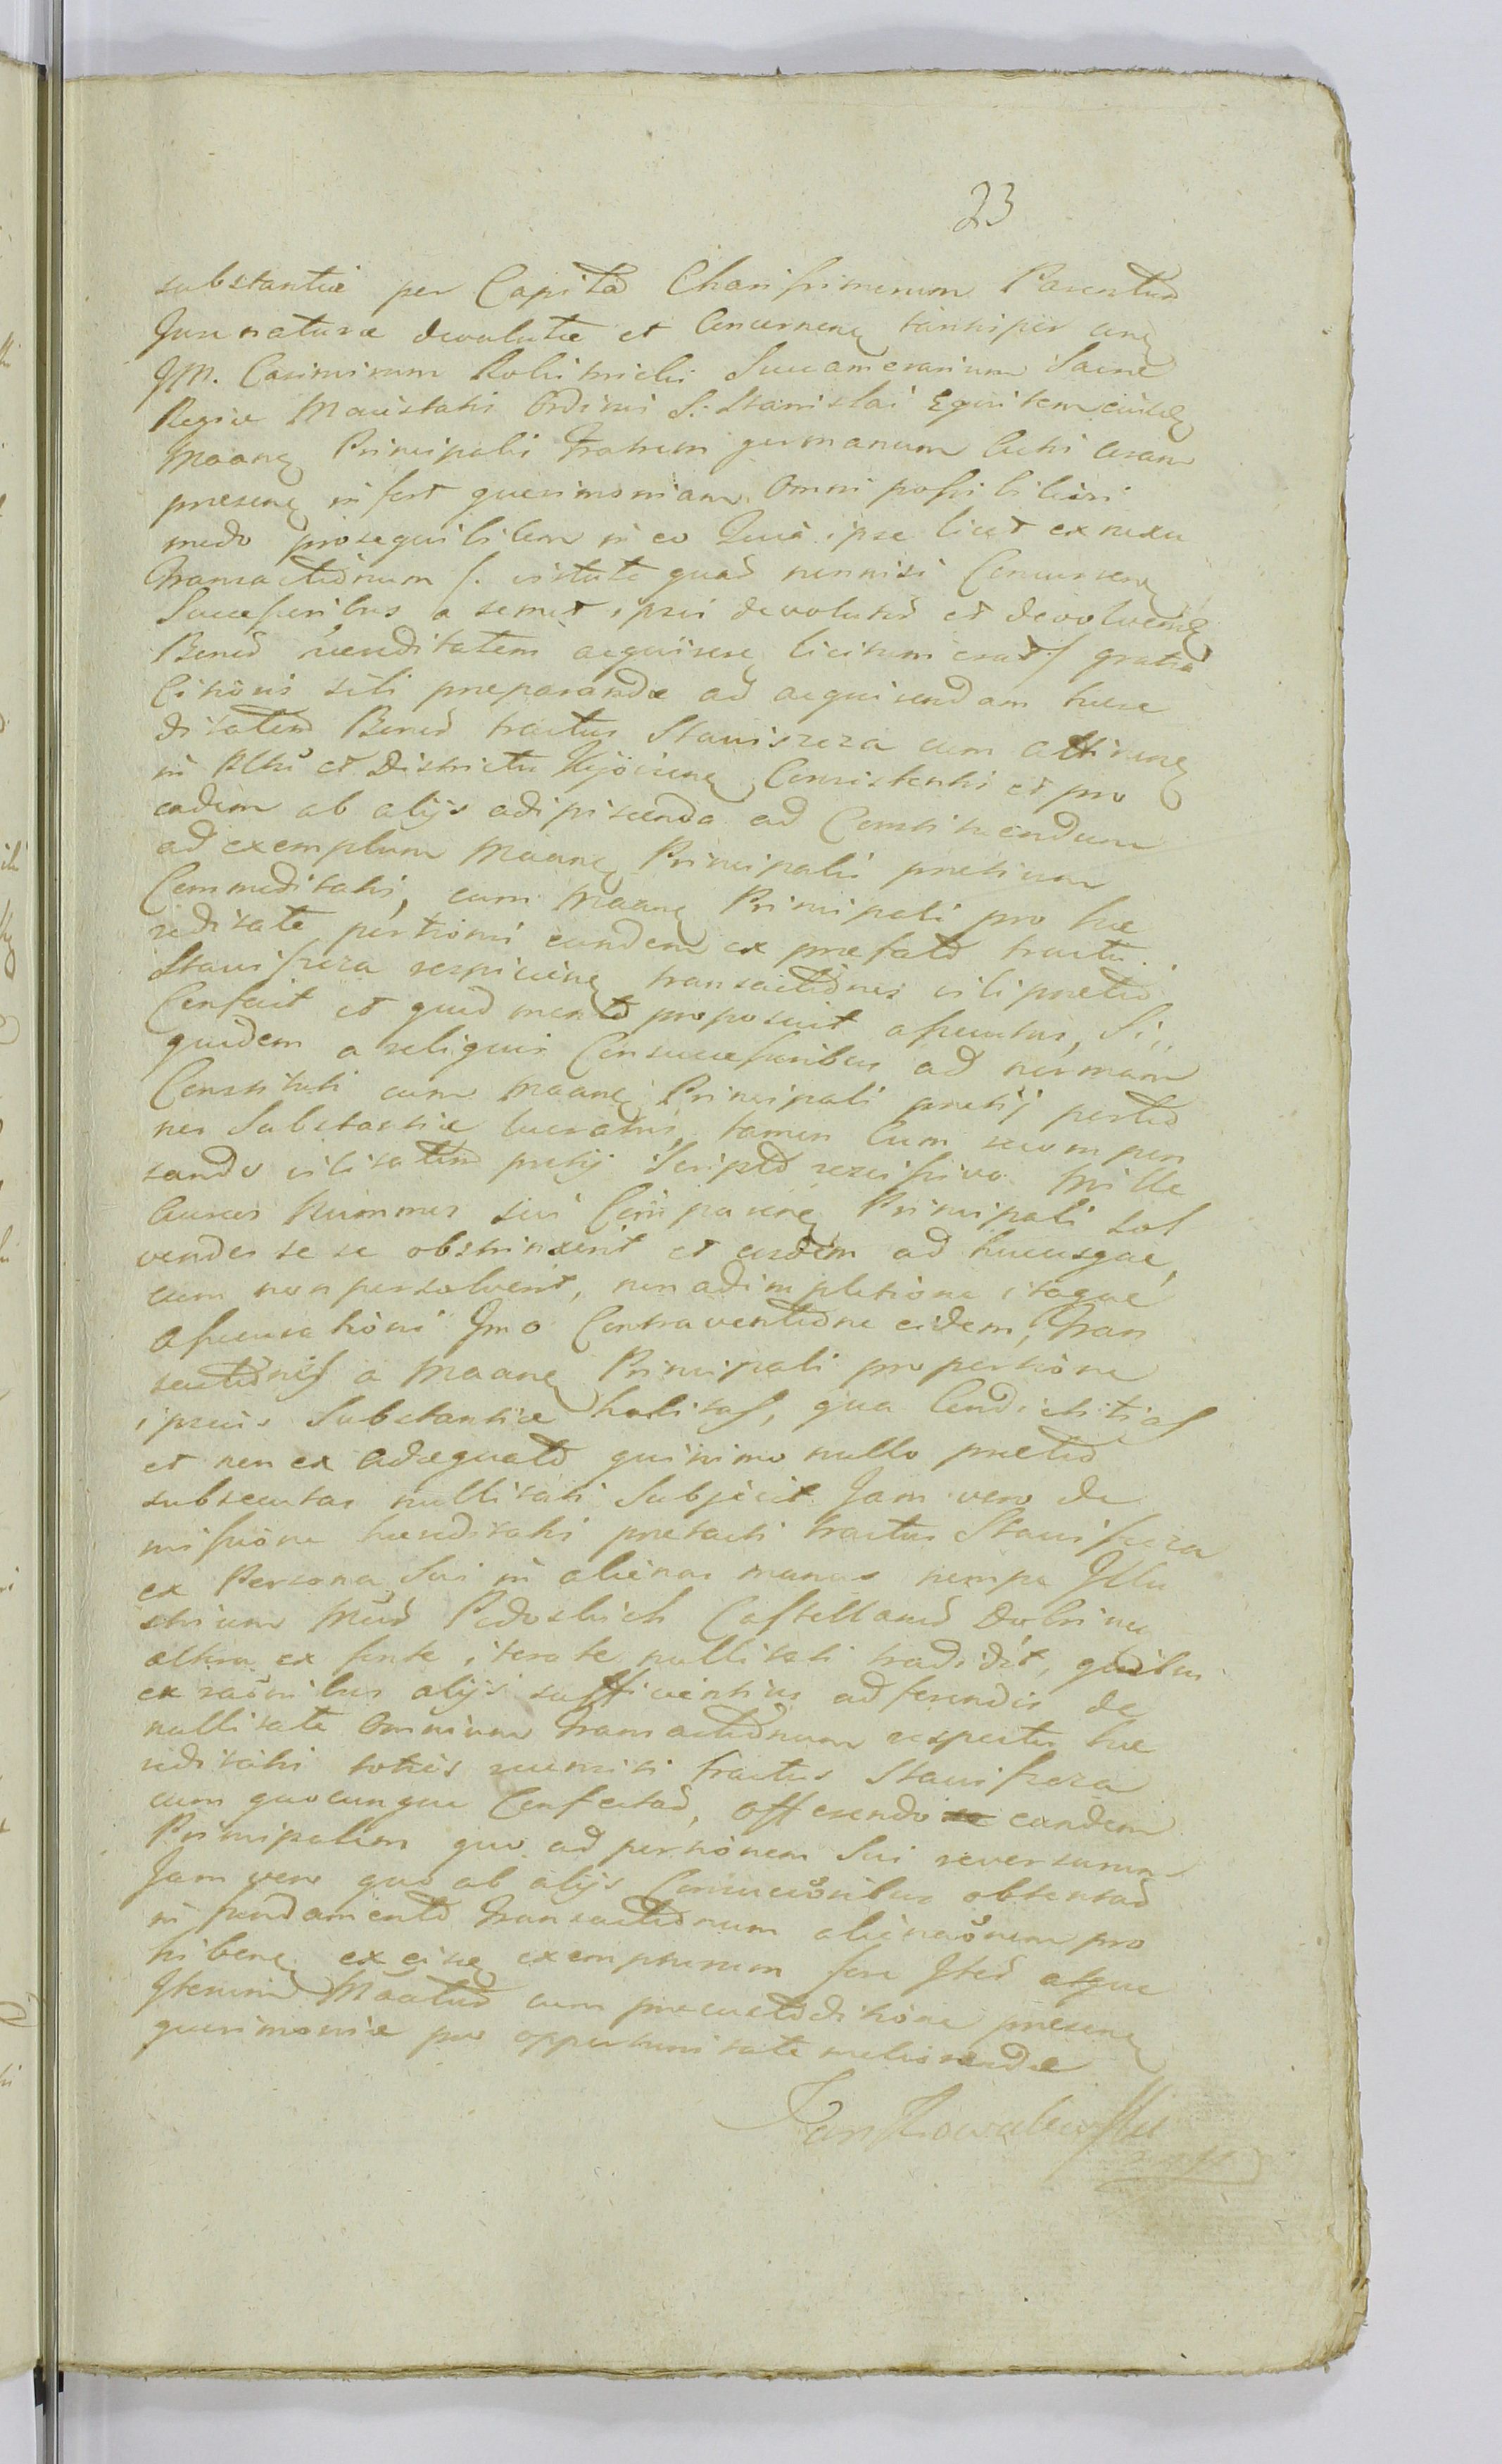 23
substantiæ per Capita Charissimorum Parentum
Jure naturæ devolutæ et Concernen tantisper
JM. Casimirum Succamerarium Sacræ
Regiæ Maiestatis Ordinis S. Stanislai Equitem eiusdem
Maan Principalis Fratrem germanum Actis coram
præsen infert querimoniam Omni possibiliori
modo prosequibilem in eo Quia ipse licet ex nexu
Transactionum s. virtute quad nonnisi Concurren
Successoribus a semet ipsis devolutor et devolven
Bonor hæreditatem acquirere licitum erat s gratia
sibi præparandæ ad acquirendam hære
ditatem Bonor tractus Stawiszcza cum Attinen
in Pltu et Districtu Kijovien Consistentis et pro
eadem ab alijs adipiscenda ad Constituendum
ad exemplum Maan Principalis pretium
Commoditatis, cum Maan Principali pro hæ
reditate portionis eundem ex præfato tractu
Stawiszcza respicien transactiones vili pretio
Confecit et quod mente proposuit assecutus, Si
quidem a reliquis Consuccessoribus ad normam
Constituti cum Maan Principali pretij portio
nes Substantiæ lucratus, tamen Cum recompen
sando vilitatem pretij Scripto reversivo Mille
Aureos Nummos sui Comparen Principali sol
vendos se se obstrinxerit et eosdem ad hucusque
cum non persolverit, non adimpletione itaque
Assecurationis Imo Contraventione eidem, Tran
sactiones a Maan Principali pro portione
ipsius Substantiæ habitas, qua Condictitias
et non ex adæquato quinimo nullo pretio
subsecutas nullitati Subjecit Jam vero de
missione hæreditatis prætacti tractus Stawiszcza
ex Persona Sui in alienas manus nempe Illu
strium Castellanor Dobrinen
altera ex fonte iterate nullitati tradidit, quibus
ex raonibus alijs sufficientius adferendis de
nullitate Omnium Transactionum respectu hæ
reditatis toties recensiti tractus Stawiszcza
cum quocunque Confectar, offerendo eundem
Principalem quo ad portionem Sui reversurum
Jam vero quo ab alijs Consuccessoribus obtentar
in fundamento Transactionum alienaonem pro
hiben ex eisq exempturum fore Ster atque
Iterum Maatur cum præcustoditione præsen
querimoniæ pro opportunitate meliorandæ
Jan Kowalewski
mpp